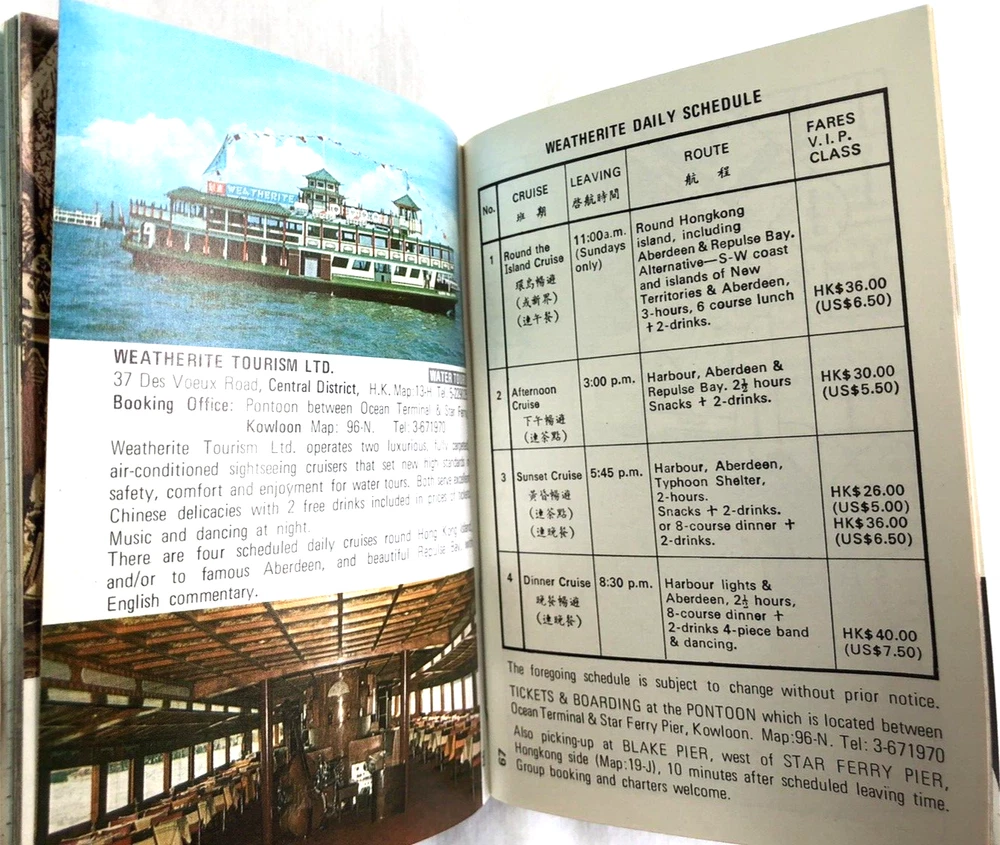 WEATHERITE
WEATHERITE TOURISM LTD.
WATER TOUR
37 Des Voeux Road, Central District, H.K. Map: 13-H Tel:
Booking Office: Pontoon between Ocean Terminal & Star Ferry
Kowloon Map: 96-N. Tel: 3-671970
Weatherite Tourism Ltd. operates two luxurious, fully carpeted
air-conditioned sightseeing cruisers that set new high standards in
safety, comfort and enjoyment for water tours. Both serve excellent
Chinese delicacies with 2 free drinks included in prices of
Music and dancing at night.
There are four scheduled daily cruises round Hong Kong island
and/or to famous Aberdeen, and beautiful Repulse Bay, with
English commentary.
WEATHERITE DAILY SCHEDULE
No. CRUISE LEAVING ROUTE FARES
V.I.P.
CLASS
班期 啓航時間 航程
1 Round the
Island Cruise
環島暢遊
(或新界)
(連午餐)
11:00a.m.
(Sundays
only)
Round Hongkong
island, including
Aberdeen & Repulse Bay.
Alternative—S-W coast
and islands of New
Territories & Aberdeen,
3-hours, 6 course lunch
+ 2-drinks.
HK$36.00
(US$6.50)
2 Afternoon
Cruise
下午暢遊
(連茶點)
3:00 p.m.
Harbour, Aberdeen &
Repulse Bay. 2½ hours
Snacks + 2-drinks.
HK$30.00
(US$5.50)
3 Sunset Cruise
黃昏暢遊
(連茶點)
(連晚餐)
5:45 p.m.
Harbour, Aberdeen,
Typhoon Shelter,
2-hours.
Snacks + 2-drinks.
or 8-course dinner +
2-drinks.
HK$26.00
(US$5.00)
HK$36.00
(US$6.50)
4 Dinner Cruise
晚餐暢遊
(連晚餐)
8:30 p.m.
Harbour lights &
Aberdeen, 2½ hours,
8-course dinner +
2-drinks 4-piece band
& dancing.
HK$40.00
(US$7.50)
The foregoing schedule is subject to change without prior notice.
TICKETS & BOARDING at the PONTOON which is located between
Ocean Terminal & Star Ferry Pier, Kowloon. Map:96-N. Tel: 3-671970
Also picking-up at BLAKE PIER, west of STAR FERRY PIER,
Hongkong side (Map:19-J), 10 minutes after scheduled leaving time.
Group booking and charters welcome.
67